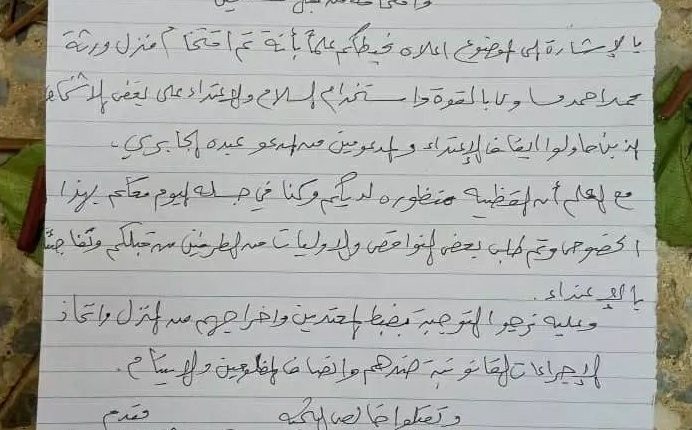 بالإشارة إلى الموضوع اعلاه نحيطكم علماً بأنة تم اقتحام منزل ورثة
محمد احمد بالقوة واستخدام السلاح والاعتداء على بعض الاشخاص
الذين حاولوا ايقاف الإعتداء والمدعومين من المدعو عبده الجابري.
مع العلم أن القظية منظوره لديكم وكنا في جلسة اليوم معكم بهذا
الخصوص وتم طلب بعض النواقص والاوليات من الطرفين من قبلكم وتفاجئنا
بالإعتداء.
وعليه نرجوا التوجية بضبط المعتدين واخراجهم من المنزل واتخاذ
الإجراءات القانونية ضدهم وانصاف المظلومين والايتام.
وتقبلوا خالص التحية مقدم